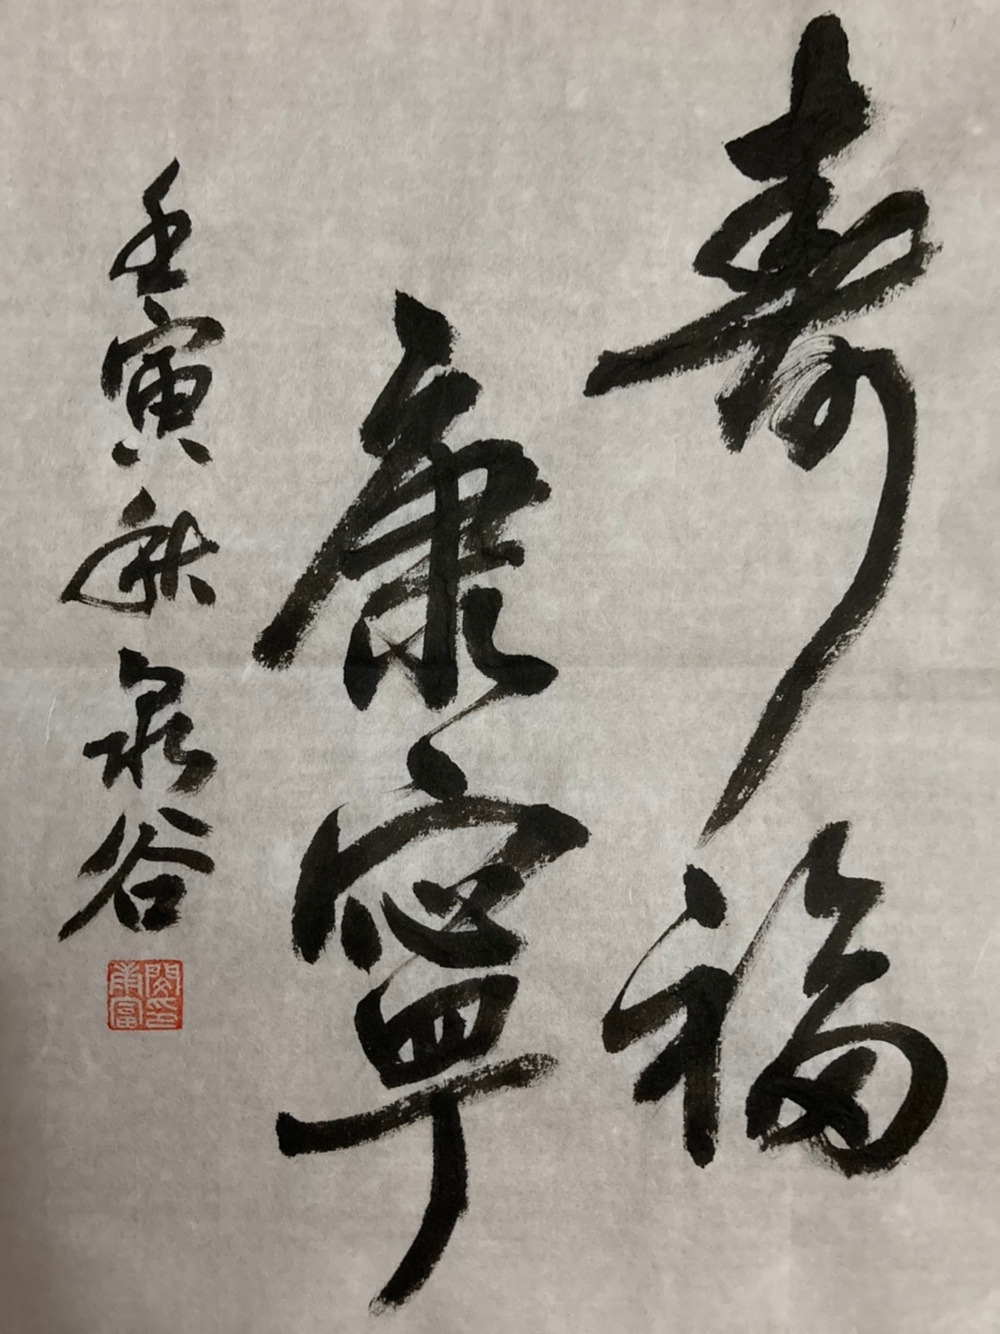 壽福
康寧
壬寅秋 泉谷